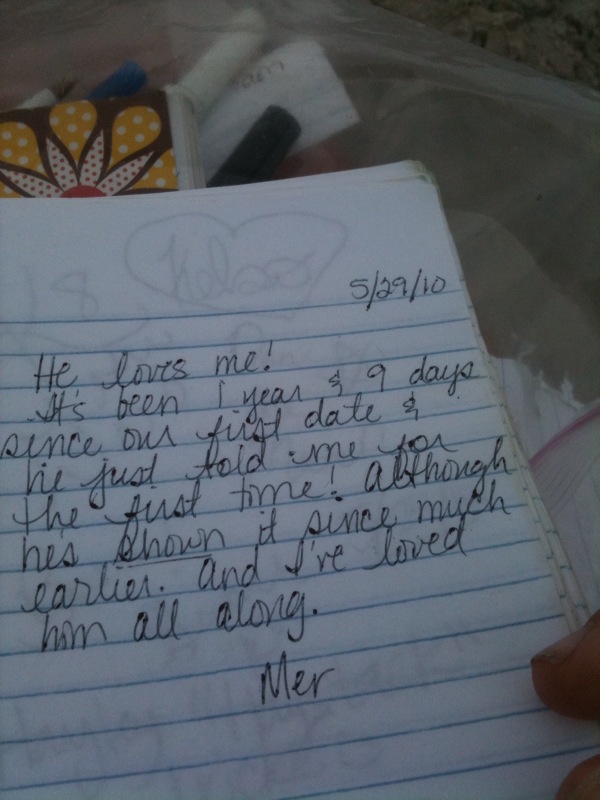 Kelsey
5/29/10
He loves me!
It's been 1 year & 9 days
since our first date &
he just told me for
the first time! Although
he's shown it since much
earlier. And I've loved
him all along.
Mer